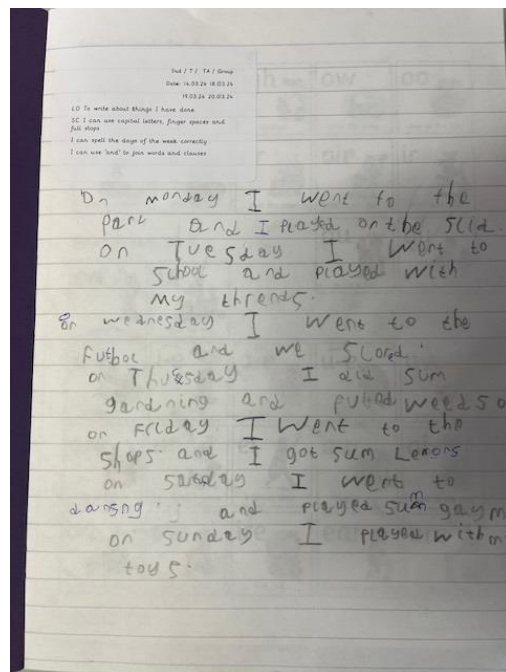 Ind / T / TA / Group
Date: 14.03.24 18.03.24
19.03.24 20.03.24
LO To write about things I have done
SC I can use capital letters, finger spaces and
full stops
I can spell the days of the week correctly
I can use 'and' to join words and clauses
On monday I went to the
park and I played on the Slid.
on Tuesday I went to
School and played with
My thrends.
on wednesday I went to the
Futbol and we Scored.
on Thursday I did Sum
gardning and pulled weeds
on Friday I went to the
Shops and I got sum Lemons
on I went to
and played sum gaym
on Sunday I played with m
toys.